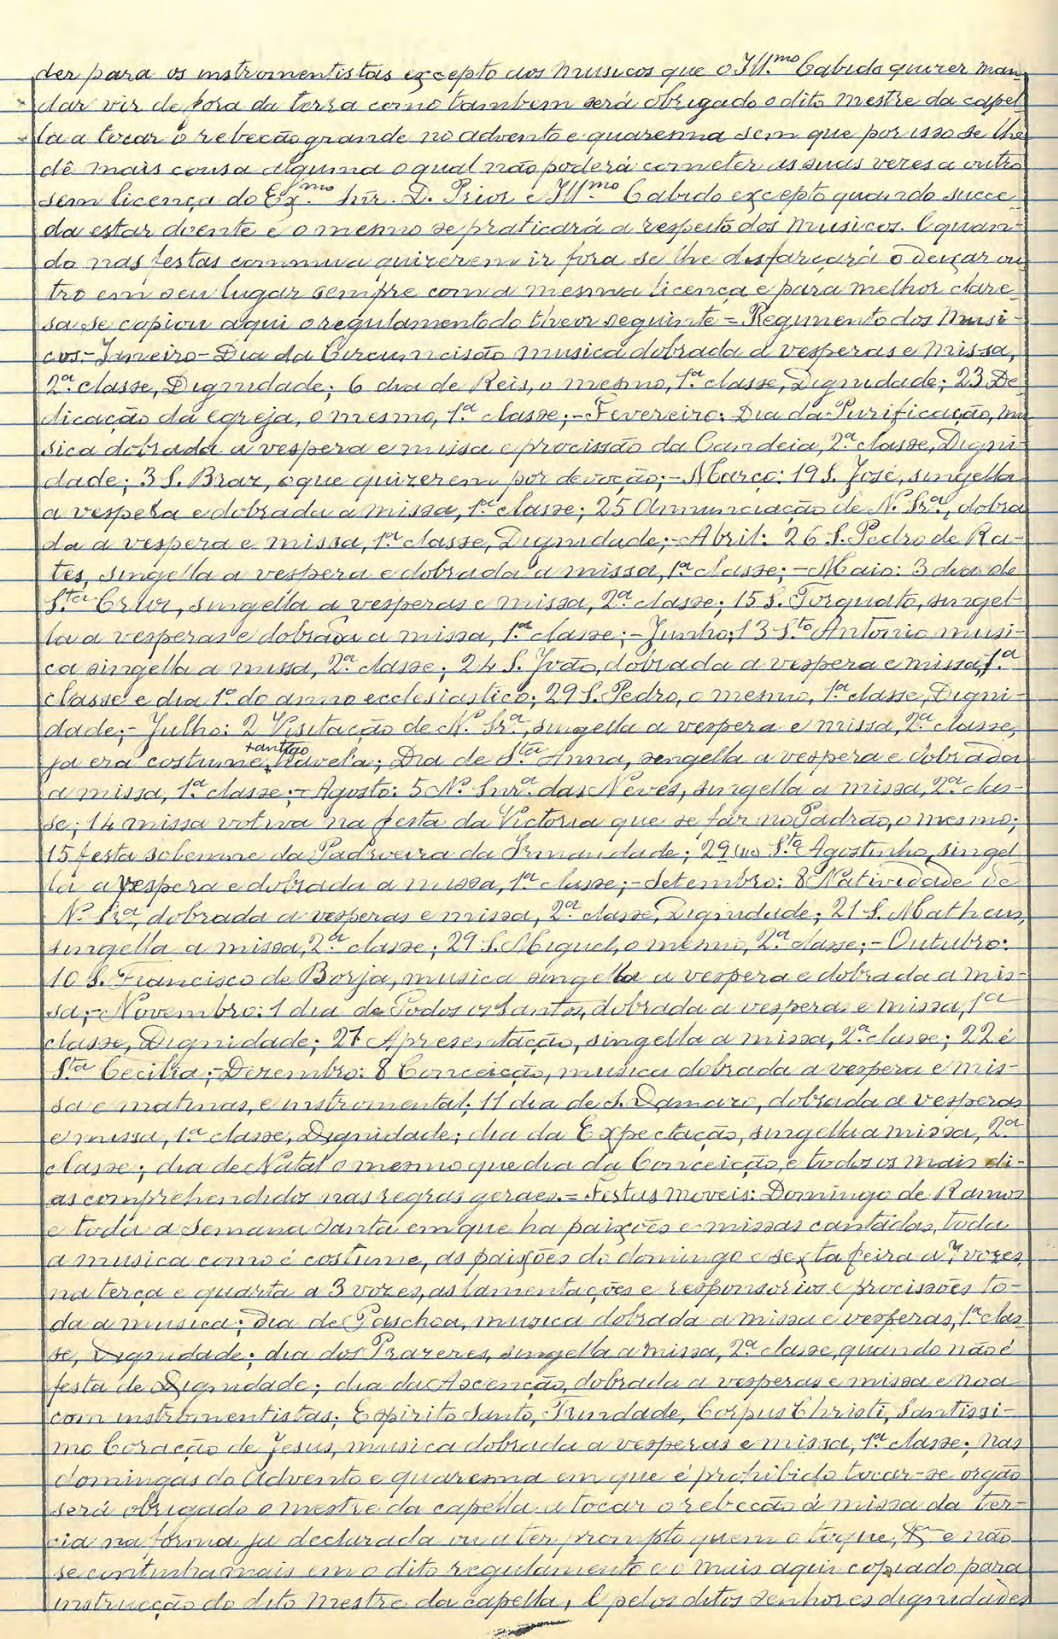 der para os instromentistas excepto aos musicos que o Ill.mo Cabido quizer man-
dar vir de fora da terra como tambem será obrigado o dito mestre da capel-
la a tocar o rebecão grande no advento e quaresma sem que por isso se lhe
dê mais cousa alguma o qual não poderá cometer as suas vezes a outro
sem licença do Ex.mo Snr. D. Prior e Ill.mo Cabido excepto quando succe-
da estar doente e o mesmo se praticará a respeito dos musicos. E quan-
do nas festas commua quizerem ir fora se lhe disfarçará o deixar ou-
tro em seu lugar sempre com a mesma licença e para melhor clare-
sa se copiou aqui o regulamento do theor seguinte = Regimento dos Musi-
cos - Janeiro - Dia da Circumcisão musica dobrada a vesperas e missa,
2ª classe, Dignidade; 6 dia de Reis, o mesmo, 1ª classe, Dignidade; 23 De-
dicação da egreja, o mesmo, 1ª classe; - Fevereiro: Dia da Purificação, mu-
sica dobrada a vespera e missa e procissão da Candeia, 2ª classe, Digni-
dade; 3 S. Braz, o que quizerem por devoção; - Março: 19 S. José, singella
a vespera e dobrada a missa, 1ª classe; 25 Annunciação de N. Srª, dobra
da a vespera e missa, 1ª classe, Dignidade; - Abril: 26 S. Pedro de Ra-
tes, singella a vespera e dobrada a missa, 1ª classe; - Maio: 3 dia de
S.ta Cruz, singella a vesperas e missa, 2ª classe; 15 S. Torquato, singel-
la a vesperas e dobrada a missa, 1ª classe; - Junho; 13 S.to Antonio musi-
ca singella a missa, 2ª classe; 24 S. João, dobrada a vespera e missa, 1ª
classe e dia 1º do anno ecclesiastico; 29 S. Pedro, o mesmo, 1ª classe, Digni-
dade; - Julho: 2 Visitação de N. Srª, singella a vespera e missa, 2ª classe,
ja era costume antigo havela; Dia de S.ta Anna, singella a vespera e dobrada
a missa, 1ª classe; - Agosto: 5 Nª Snrª das Neves, singella a missa, 2ª clas-
se; 14 missa votiva na festa da Victoria que se faz no Padrão, o mesmo;
15 festa solemne da Padroeira da Irmandade; 29 S.to Agostinho, singel-
la a vespera e dobrada a missa, 1ª classe; - Setembro: 8 Natividade de
N. Srª, dobrada a vesperas e missa, 2ª classe, Dignidade; 21 S. Matheus,
singella a missa, 2ª classe; 29 S. Miguel, o mesmo, 2ª classe; - Outubro:
10 S. Francisco de Borja, musica singella a vespera e dobrada a mis-
sa; - Novembro: 1 dia de Todos os Santos, dobrada a vespera e missa, 1ª
classe, Dignidade; 21 Apresentação, singella a missa, 2ª classe; 22 é
S.ta Cecilia; - Dezembro: 8 Conceição, musica dobrada a vespera e mis-
sa e matinas, e instromental; 11 dia de S. Damazo, dobrada a vesperas
e missa, 1ª classe, Dignidade; dia da Expectação, singella a missa, 2ª
classe; dia de Natal o mesmo que dia da Conceição, e todos os mais di-
as comprehendidos nas regras geraes. = Festas moveis: Domingo de Ramos
e toda a Semana Santa em que ha paixões e missas cantadas, toda
a musica como é costume, as paixões do domingo e sexta feira a 7 vozes,
na terça e quarta a 3 vozes, as lamentações e responsorios e procissões to-
da a musica; Dia de Paschoa, musica dobrada a missa e vesperas, 1ª clas-
se, Dignidade; dia dos Prazeres, singella a missa, 2ª classe, quando não é
festa de Dignidade; dia da Ascenção, dobrada a vesperas e missa e noa
com instromentistas; Espirito Santo, Trindade, Corpus Christi, Santissi-
mo Coração de Jesus, musica dobrada a vesperas e missa, 1ª classe; nas
domingas do Advento e quaresma em que é prohibido tocar-se orgão
será obrigado o mestre da capella a tocar o rebecão á missa da ter-
cia na forma ja declarada ou a ter prompto quem o toque, e não
se continha mais em o dito regulamento e o mais aqui copiado para
instrucção do dito mestre da capella. E pelos ditos senhores dignidades